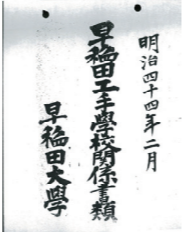 明治四十四年二月
早稲田工手學校関係書類
早稲田大學